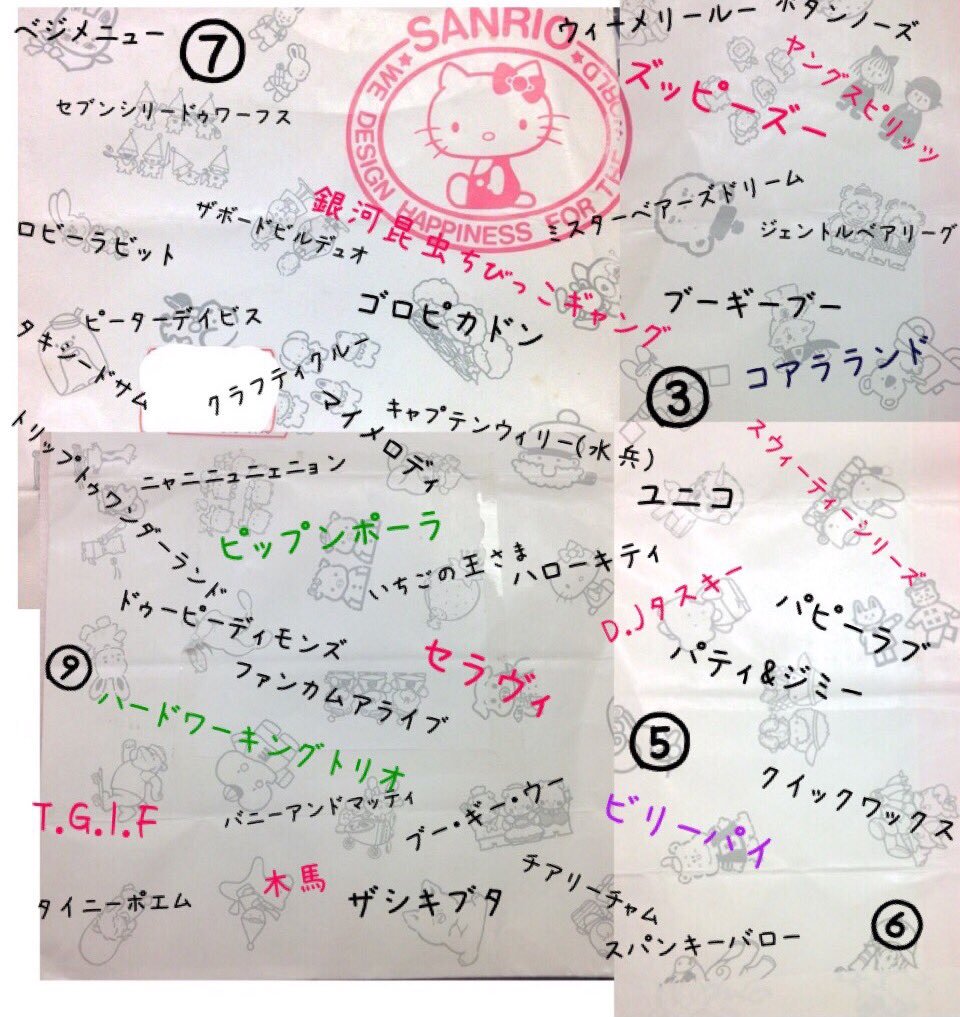 ベジメニュー
⑦
セブンシリードゥワーフス
SANRIO
WE DESIGN HAPPINESS FOR THE WORLD
ウィーメリールー
ボタンノーズ
ズッピーズー
ヤングスピリッツ
ロビーラビット
ザボードビルデュオ
銀河昆虫ちびっこギャング
ミスターベアーズドリーム
ジェントルベアリーグ
ピーターデイビス
ゴロピカドン
ブーギーブー
タキシードサム
クラフティクルー
③
コアラランド
マイメロディ
キャプテンウィリー(水兵)
トリップトゥワンダーランド
ニャニニュニェニョン
ユニコ
スウィーティーシリーズ
ピップンポーラ
いちごの王さま
ハローキティ
D.Jタスキー
パピーラブ
ドゥーピーディモンズ
⑨
ファンカムアライブ
セラヴィ
パティ&ジミー
ハードワーキングトリオ
⑤
T.G.I.F
バニーアンドマッティ
ブー・ギー・ウー
ビリーパイ
クイックワックス
タイニーポエム
木馬
ザシキブタ
チアリーチャム
⑥
スパンキーバロー